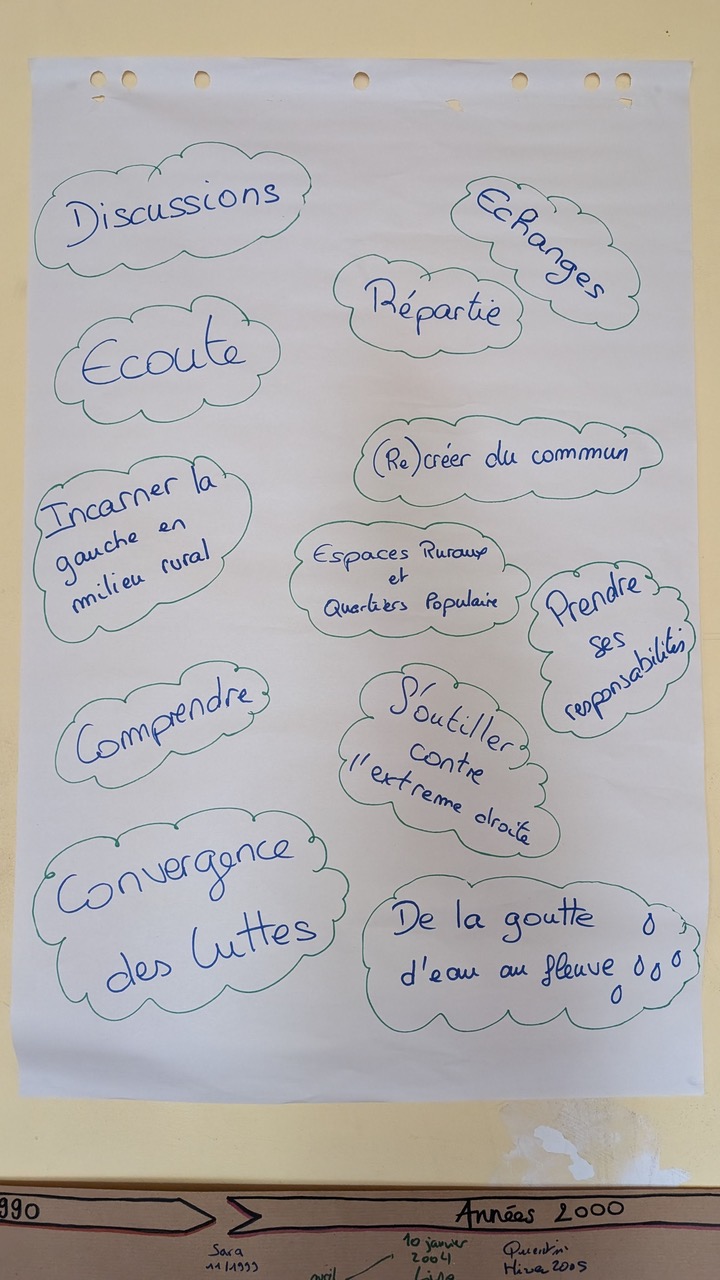 Discussions
Echanges
Répartie
Ecoute
(Re)créer du commun
Incarner la
gauche en
milieu rural
Espaces Ruraux
et
Quartiers Populaire
Prendre
ses
responsabilités
Comprendre
S'outiller
contre
l'extreme droite
Convergence
des luttes
De la goutte
d'eau au fleuve
990
Années 2000
Sara
11/1999
avril
10 janvier
2004
Quentin
Hiver 2005